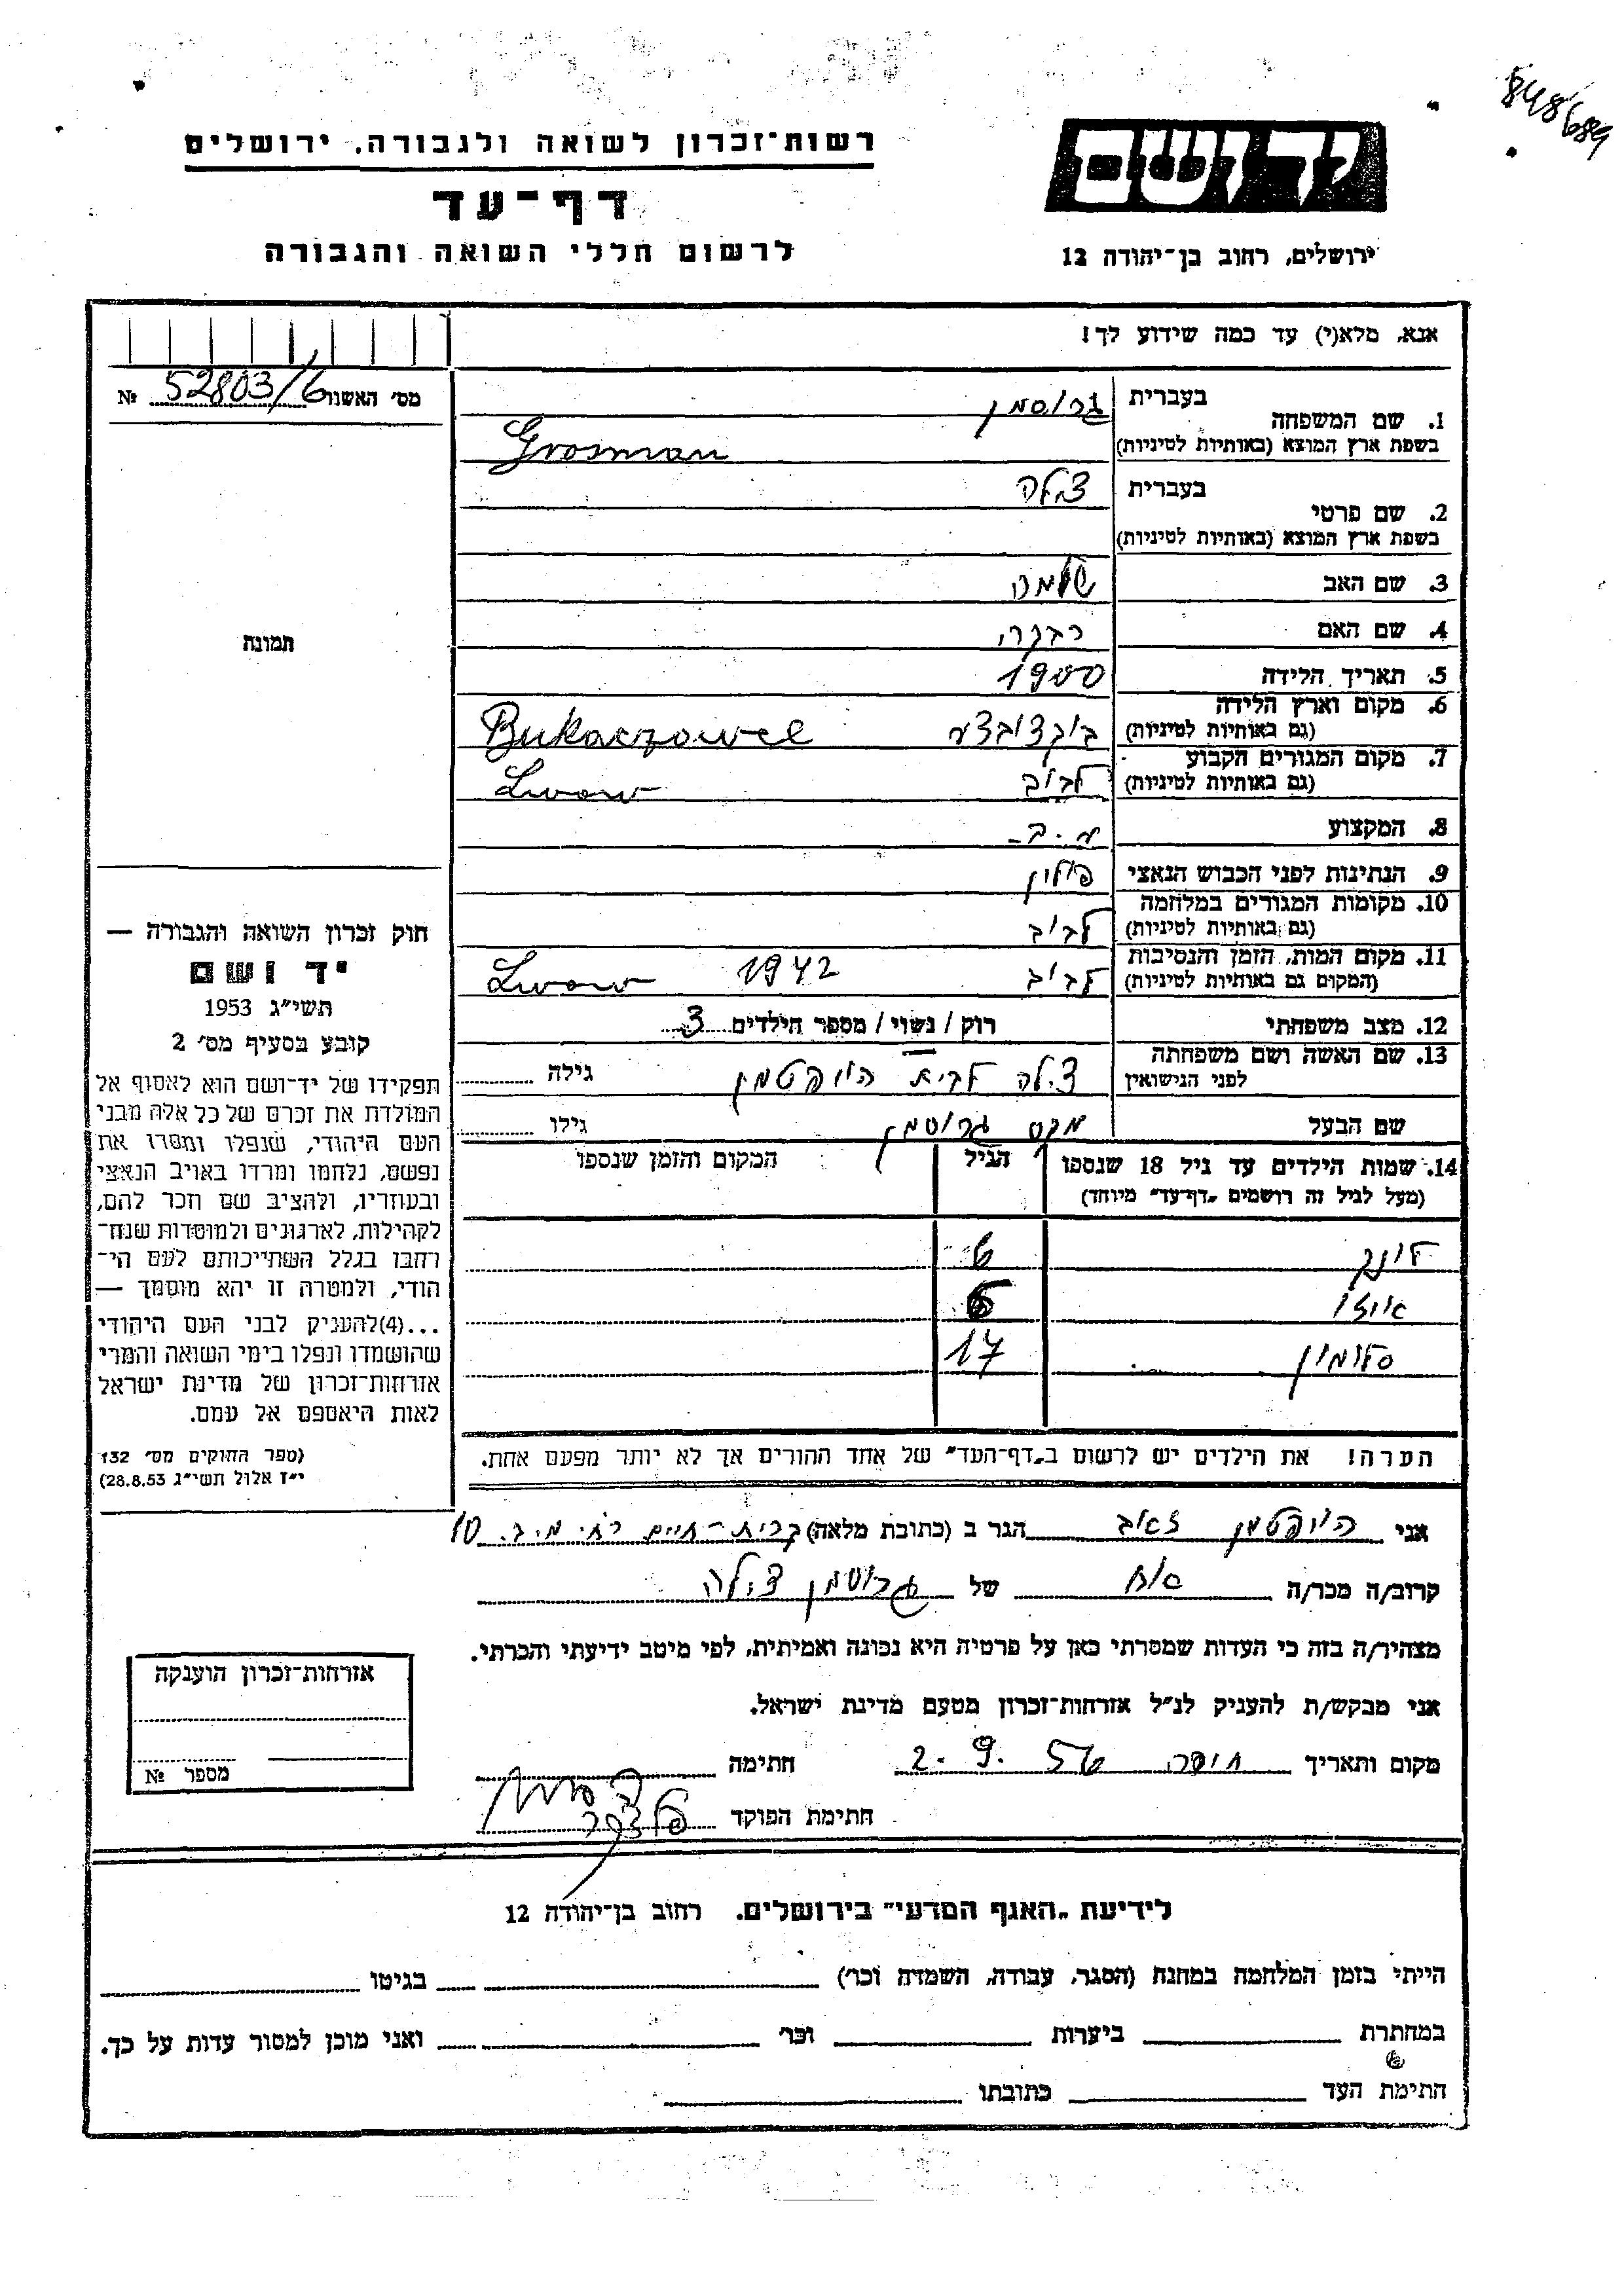 848689
רשות־זכרון לשואה ולגבורה, ירושלים
דף־עד
לרשום חללי השואה והגבורה
יד ושם
ירושלים, רחוב בן־יהודה 12
אנא, מלא(י) עד כמה שידוע לך!
מס׳ האשור 52803/6 №
1. שם המשפחה בעברית גרוסמן
בשפת ארץ המוצא (באותיות לטיניות) Grosman
2. שם פרטי בעברית צילה
בשפת ארץ המוצא (באותיות לטיניות)
3. שם האב שלמה
4. שם האם רבקה
5. תאריך הלידה 1900
6. מקום וארץ הלידה
(גם באותיות לטיניות) בוקצובצה Bukaczowce
7. מקום המגורים הקבוע
(גם באותיות לטיניות) לבוב Lwow
8. המקצוע ע.ב.
9. הנתינות לפני הכבוש הנאצי פולין
10. מקומות המגורים במלחמה
(גם באותיות לטיניות) לבוב
11. מקום המות, הזמן והנסיבות
(המקום גם באותיות לטיניות) לבוב 1942 Lwow
12. מצב משפחתי רוק / נשוי / מספר הילדים 3
13. שם האשה ושם משפחתה
לפני הנישואין צילה לבית הויפטמן גילה
שם הבעל מקס גרוסמן גילו
14. שמות הילדים עד גיל 18 שנספו הגיל המקום והזמן שנספו
(מעל לגיל זה רושמים „דף־עד” מיוחד)
לונק 6
איזו 6
סלומון 17
הערה! את הילדים יש לרשום ב„דף־העד” של אחד ההורים אך לא יותר מפעם אחת.
תמונה
חוק זכרון השואה והגבורה —
יד ושם
תשי״ג 1953
קובע בסעיף מס׳ 2
תפקידו של יד־ושם הוא לאסוף אל
המולדת את זכרם של כל אלה מבני
העם היהודי, שנפלו ומסרו את
נפשם, נלחמו ומרדו באויב הנאצי
ובעוזריו, ולהציב שם וזכר להם,
לקהילות, לארגונים ולמוסדות שנח־
רחבו בגלל השתייכותם לעם הי־
הודי, ולמטרה זו יהא מוסמך —
...(4) להעניק לבני העם היהודי
שהושמדו ונפלו בימי השואה והמרי
אזרחות־זכרון של מדינת ישראל
לאות היאספם אל עמם.
(ספר החוקים מס׳ 132
י״ז אלול תשי״ג 28.8.53)
אני הויפטמן זאב הגר ב (כתובת מלאה) קרית-חיים רח׳ מ.ב. 10
קרוב/ה מכר/ה אח של גרוסמן צילה
מצהיר/ה בזה כי העדות שמסרתי כאן על פרטיה היא נכונה ואמיתית, לפי מיטב ידיעתי והכרתי.
אני מבקש/ת להעניק לנ״ל אזרחות־זכרון מטעם מדינת ישראל.
מקום ותאריך חיפה 2.9.56 חתימה
חתימת הפוקד
אזרחות־זכרון הוענקה
מספר №
לידיעת „האגף המדעי” בירושלים. רחוב בן־יהודה 12
הייתי בזמן המלחמה במחנה (הסגר, עבודה, השמדה וכו׳) בגיטו
במחתרת ביערות וכו׳ ואני מוכן למסור עדות על כך.
חתימת העד כתובתו